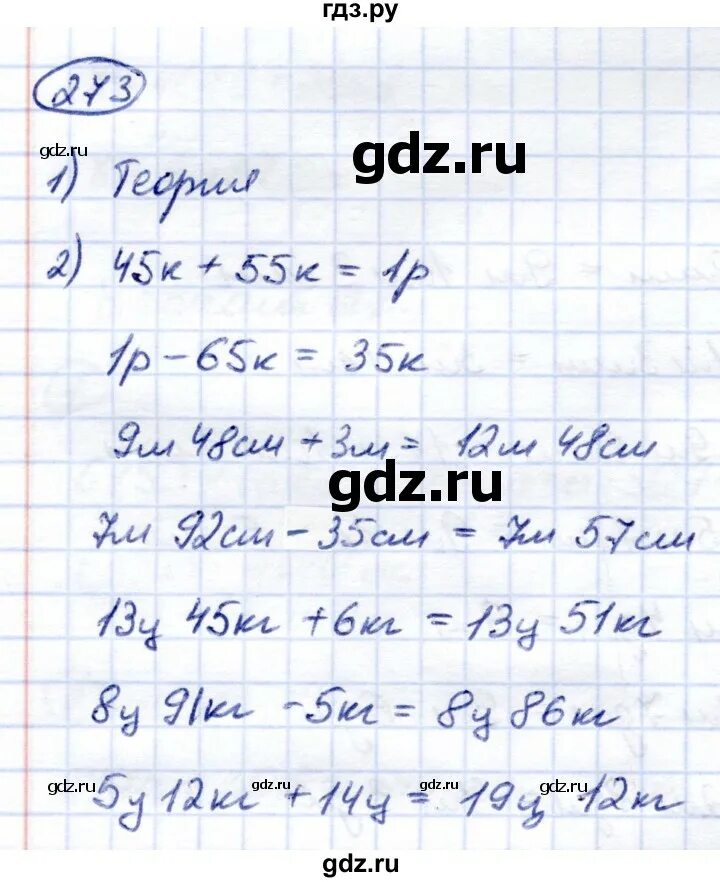 гдз.ру
273
gdz.ru
gdz.ru
1) Теория
2) 45к + 55к = 1р
1р - 65к = 35к
9м 48см + 3м = 12м 48см
gdz.ru
7м 92см - 35см = 7м 57см
13ц 45кг + 6кг = 13ц 51кг
8ц 91кг - 5кг = 8ц 86кг
gdz.ru gdz.ru gdz.ru gdz.ru
5ц 12кг + 14ц = 19ц 12кг
gdz.ru